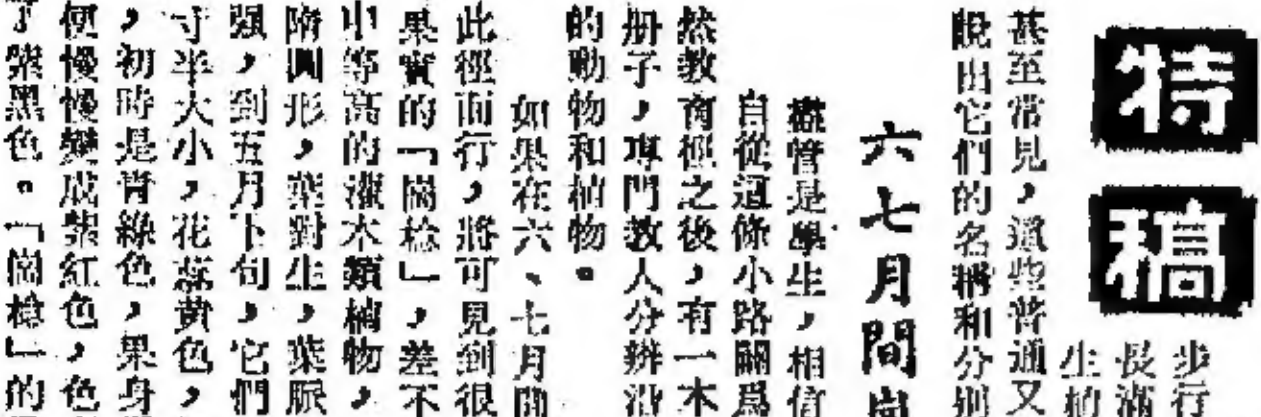 特稿
步行
長滿
生植
甚至常見，這些普通又
說出它們的名稱和分別
六七月間崗
儘管是學生，相信
自從這條小路闢爲
然教育徑之後，有一木
册子，專門教人分辨沿
的動物和植物。
如果在六、七月間
此徑而行，將可見到很
果實的「崗棯」，差不
中等高的灌木類植物，
隋圓形，葉對生，葉脈
强，到五月下旬，它們
寸半大小，花蕊黄色，
，初時是青綠色，果身
便慢慢變成紫紅色，色
了紫黑色。「崗棯」的